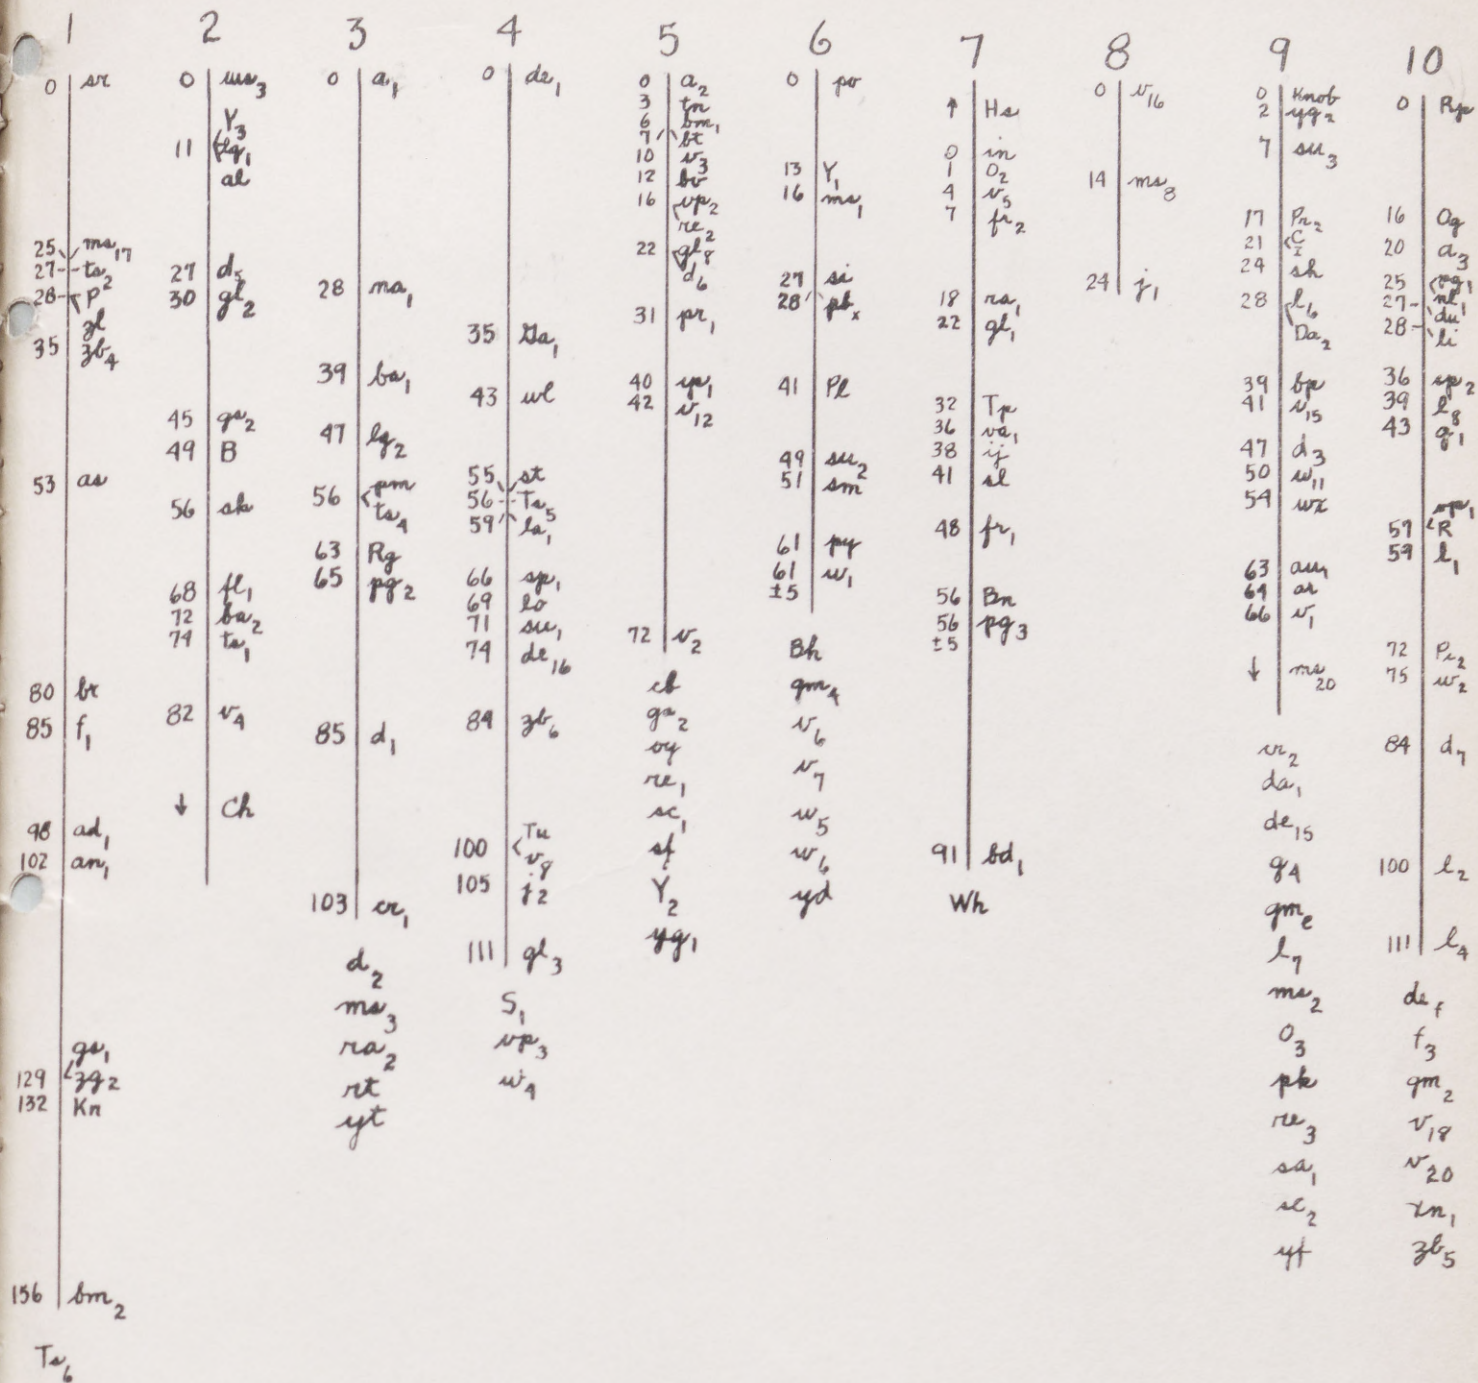 1
0 sr
25 ms17
27 ts2
28 P
zl
35 zb4
53 as
80 br
85 f1
98 ad1
102 an1
gs1
129 zg2
132 Kn
156 bm2
Ts6
2
0 ws3
Y3
11 lg1
al
27 d5
30 gl2
45 gs2
49 B
56 sk
68 fl1
72 ba2
74 ts1
82 v4
↓ Ch
3
0 a1
28 na1
39 ba1
47 lg2
56 pm
ts4
63 Rg
65 pg2
85 d1
103 cr1
d2
ms3
ra2
rt
yt
4
0 de1
35 Ga1
43 wl
55 st
56 Ts5
59 la1
66 sp1
69 lo
71 su1
74 de16
84 zb6
100 Tu
v8
105 j2
111 gl3
S1
vp3
w4
5
0 a2
3 tn
6 bm1
7 bt
10 v3
12 bv
16 vp2
re2
22 gl8
d6
31 pr1
40 yp1
42 v12
72 v2
cb
gs2
oy
re1
sc1
sf
Y2
yg1
6
0 po
13 Y1
16 ms1
27 si
28 pbx
41 Pl
49 su2
51 sm
61 py
61 ±5 w1
Bh
gm4
v6
v7
w5
w6
yd
7
↑ Hs
0 in
1 O2
4 v5
7 fr2
18 ra1
22 gl1
32 Tp
36 va1
38 ij
41 sl
48 fr1
56 Bn
56 ±5 pg3
91 bd1
Wh
8
0 v16
14 ms8
24 j1
9
0 Knob
2 yg2
7 su3
17 Pr2
21 C I
24 sh
28 l6
Da2
39 bp
41 v15
47 d3
50 w11
54 wx
63 au1
64 ar
66 v1
↓ ms20
vr2
da1
de15
g4
gme
l7
ms2
O3
pk
re3
sa1
sc2
yf
10
0 Rp
16 Og
20 a3
25 vg1
27 nl1
du
28 li
36 sp2
39 l8
43 g1
op1
57 R
59 l1
72 Pr2
75 w2
84 d7
100 l2
111 l4
def
f3
gm2
v18
v20
xn1
zb5